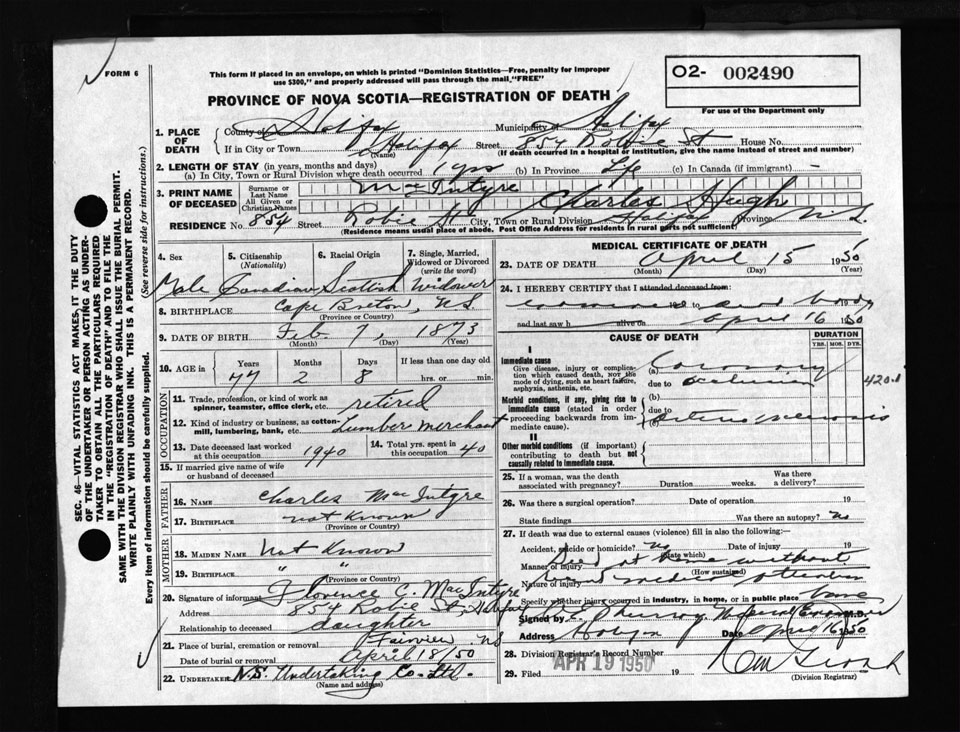 FORM 6
This form if placed in an envelope, on which is printed "Dominion Statistics—Free, penalty for improper
use $300," and properly addressed will pass through the mail "FREE"
O2- 002490
For use of the Department only
PROVINCE OF NOVA SCOTIA—REGISTRATION OF DEATH
SEC. 46—VITAL STATISTICS ACT MAKES IT THE DUTY
OF THE UNDERTAKER OR PERSON ACTING AS UNDER-
TAKER TO OBTAIN ALL THE PARTICULARS REQUIRED
IN THE "REGISTRATION OF DEATH" AND TO FILE THE
SAME WITH THE DIVISION REGISTRAR WHO SHALL ISSUE THE BURIAL PERMIT.
WRITE PLAINLY WITH UNFADING INK. THIS IS A PERMANENT RECORD.
Every item of information should be carefully supplied.
(See reverse side for instructions.)
1. PLACE OF DEATH
County of Halifax Municipality of Halifax
If in City or Town Halifax Street 854 Robie St House No.
(Name) (If death occurred in a hospital or institution, give the name instead of street and number)
2. LENGTH OF STAY (in years, months and days)
(a) In City, Town or Rural Division where death occurred (b) In Province Life (c) In Canada (if immigrant) —
3. PRINT NAME OF DECEASED
Surname or Last Name MacIntyre
All Given or Christian Names Charles Hugh
RESIDENCE No. 854 Street Robie St City, Town or Rural Division Halifax Province N.S.
(Residence means usual place of abode. Post Office Address for residents in rural parts not sufficient)
4. Sex 5. Citizenship (Nationality) 6. Racial Origin 7. Single, Married, Widowed or Divorced (write the word)
Male Canadian Scottish Widower
8. BIRTHPLACE Cape Breton, N.S.
(Province or Country)
9. DATE OF BIRTH Feb 7, 1873
(Month) (Day) (Year)
10. AGE in Years Months Days If less than one day old
77 2 8 hrs. or min.
OCCUPATION
11. Trade, profession, or kind of work as spinner, teamster, office clerk, etc. retired
12. Kind of industry or business, as cotton-mill, lumbering, bank, etc. Lumber Merchant
13. Date deceased last worked at this occupation 1940 14. Total yrs. spent in this occupation 40
15. If married give name of wife or husband of deceased
FATHER
16. NAME Charles MacIntyre
17. BIRTHPLACE not known
(Province or Country)
MOTHER
18. MAIDEN NAME Not Known
19. BIRTHPLACE " "
(Province or Country)
20. Signature of informant Florence C. MacIntyre
Address 854 Robie St, Halifax
Relationship to deceased daughter
21. Place of burial, cremation or removal Fairview NS
Date of burial or removal April 18/50
22. UNDERTAKER N.S. Undertaking Co. Ltd.
(Name and address)
MEDICAL CERTIFICATE OF DEATH
23. DATE OF DEATH April 15 1950
(Month) (Day) (Year)
24. I HEREBY CERTIFY that I attended deceased from
19 to 19
and last saw h alive on April 16 1950
CAUSE OF DEATH
DURATION
YRS. MOS. DYS.
I
Immediate cause
Give disease, injury or complication which caused death, NOT the mode of dying, such as heart failure, asphyxia, asthenia, etc.
(a) Coronary
due to occlusion 420.1
Morbid conditions, if any, giving rise to immediate cause (stated in order proceeding backwards from immediate cause).
(b)
due to
(c)
II
Other morbid conditions (if important) contributing to death but not causally related to immediate cause.
25. If a woman, was the death associated with pregnancy? Duration weeks. Was there a delivery?
26. Was there a surgical operation? Date of operation 19
State findings Was there an autopsy? No
27. If death was due to external causes (violence) fill in also the following:—
Accident, suicide or homicide? No Date of injury 19
(State which)
Manner of injury Died at home without
(How sustained)
Nature of injury
Specify whether injury occurred in industry, in home, or in public place home
Signed by M.D.
Address Halifax Date April 16 1950
28. Division Registrar's Record Number
APR 19 1950
29. Filed 19
(Division Registrar)